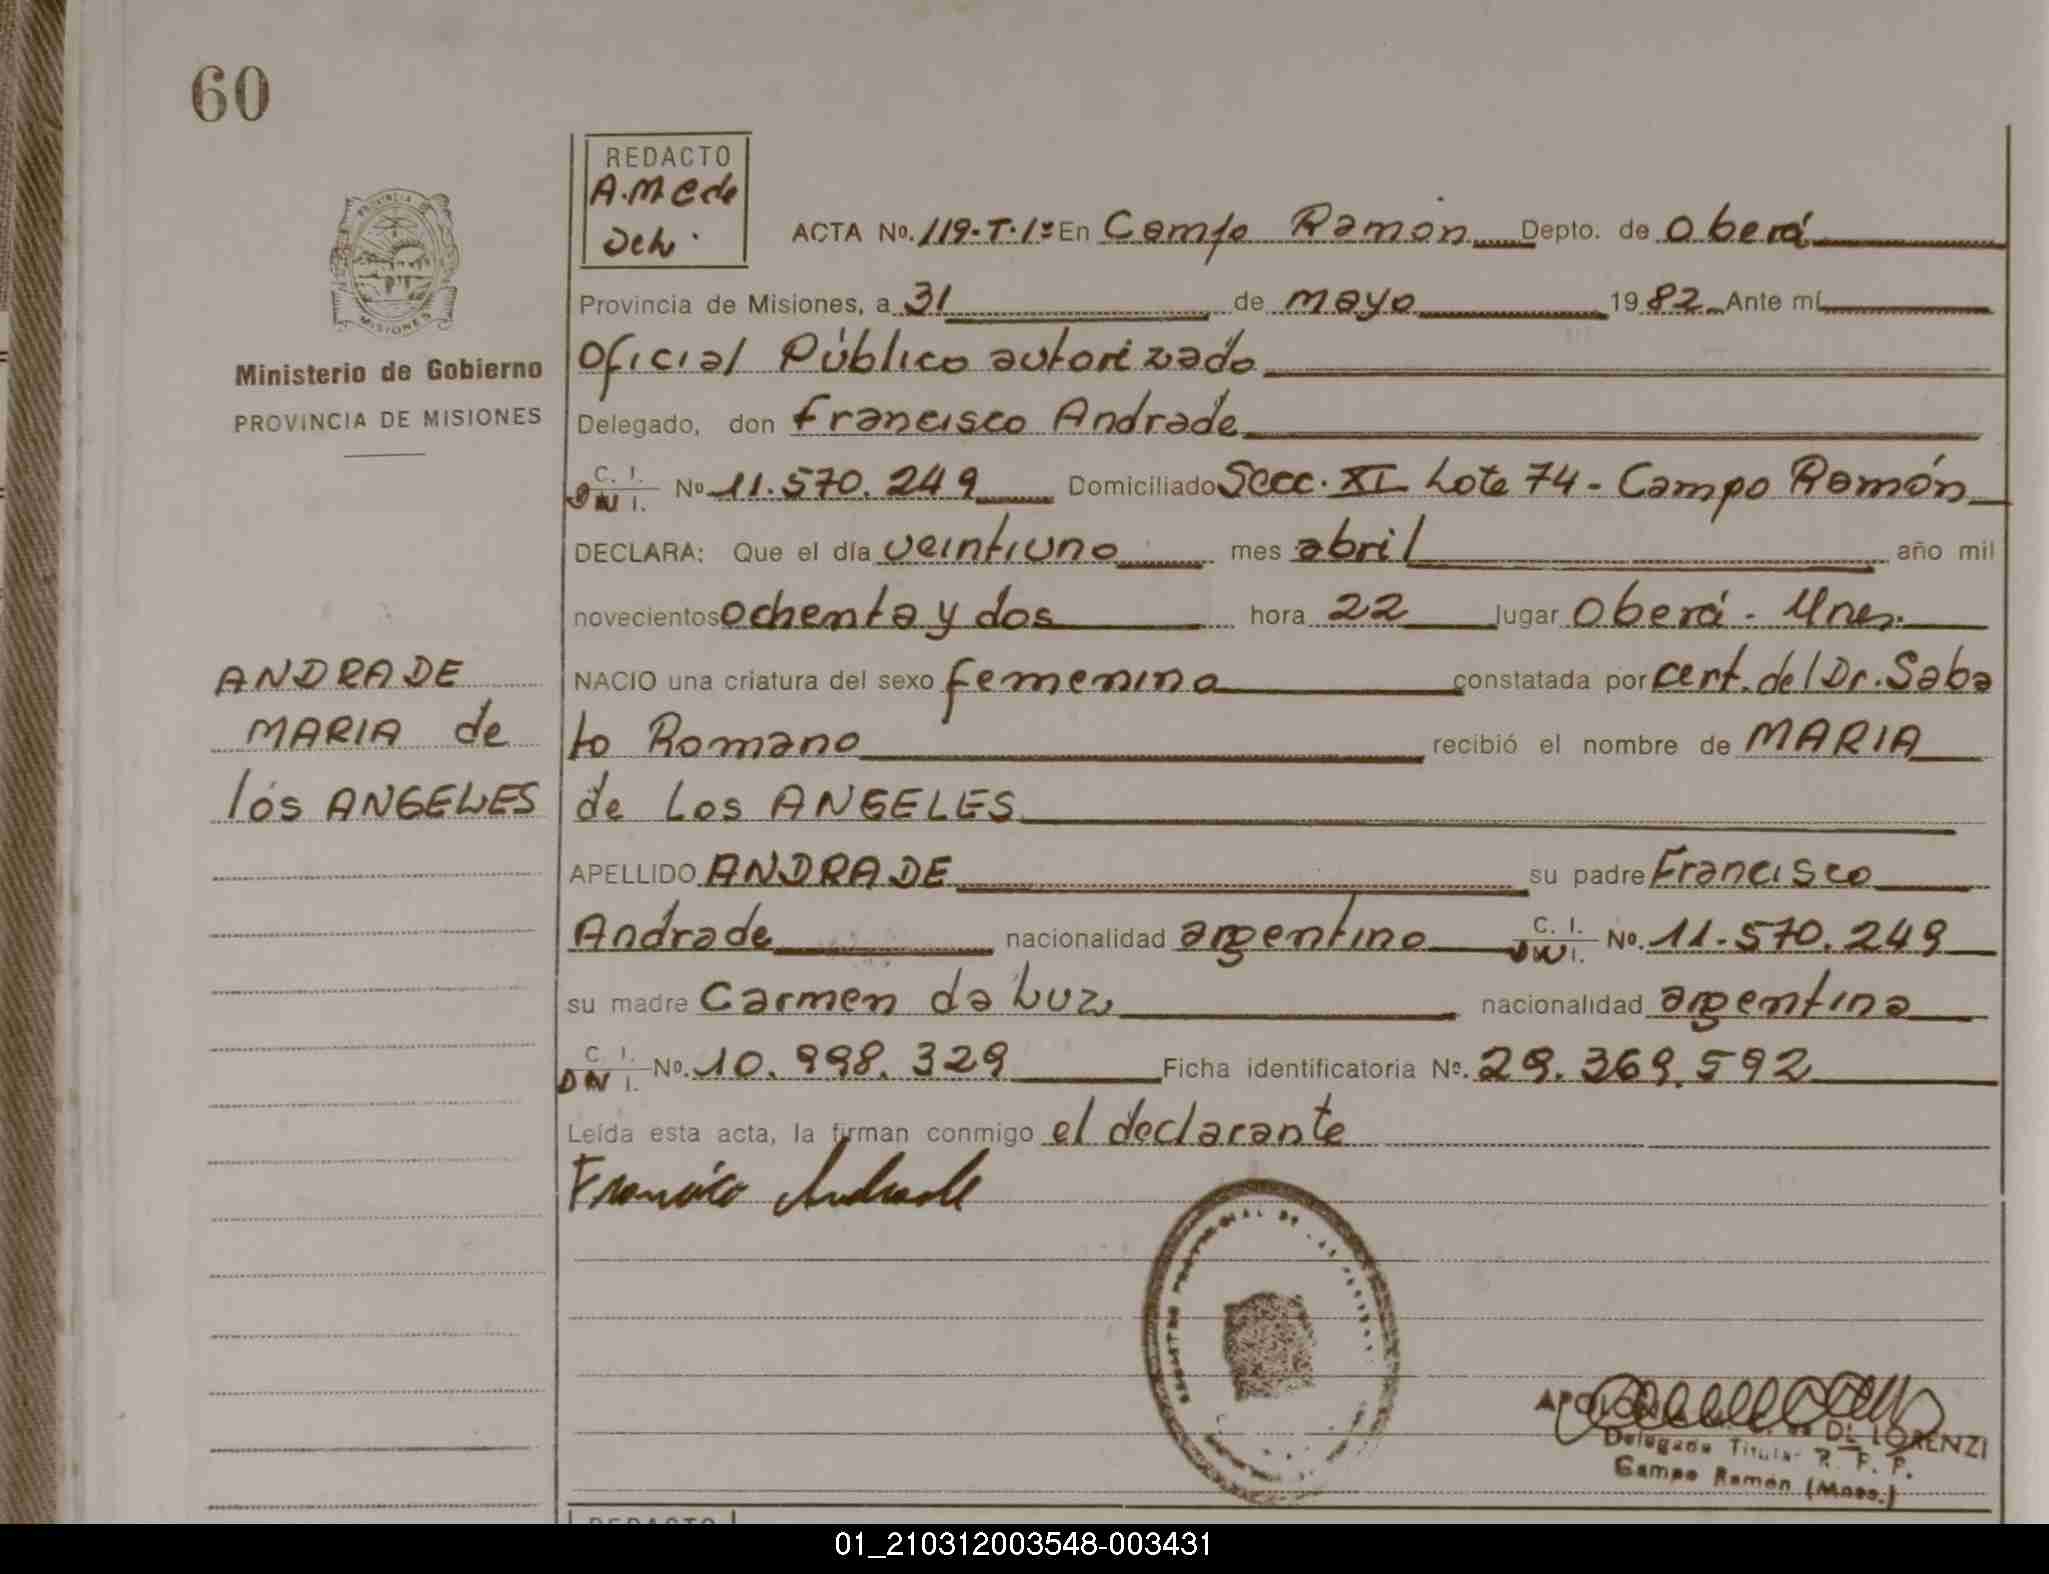 60
REDACTO
A.M.C de
ACTA Nº. 119-T-1º En Campo Ramón Depto. de Oberá
Provincia de Misiones, a 31 de mayo 1982 Ante mí
Oficial Público autorizado
Delegado, don Francisco Andrade
C. I.
DNI. Nº 11.570.249 Domiciliado Secc. XI Lote 74 - Campo Ramón
DECLARA: Que el día veintiuno mes abril año mil
novecientos ochenta y dos hora 22 lugar Oberá - Mnes.
NACIO una criatura del sexo femenino constatada por cert. del Dr. Saba
to Romano recibió el nombre de MARIA
de Los ANGELES
APELLIDO ANDRADE su padre Francisco
Andrade nacionalidad argentino C. I. DNI. Nº. 11.570.249
su madre Carmen da Luz nacionalidad argentina
C. I.
DNI. Nº. 10.998.329 Ficha identificatoria Nº. 29.369.592
Leída esta acta, la firman conmigo el declarante
Francisco Andrade
PROVINCIA DE
MISIONES
Ministerio de Gobierno
PROVINCIA DE MISIONES
ANDRADE
MARIA de
los ANGELES
DI LORENZI
Delegada Titular R. P. P.
Campo Ramón (Mnes.)
REDACTO
01_210312003548-003431